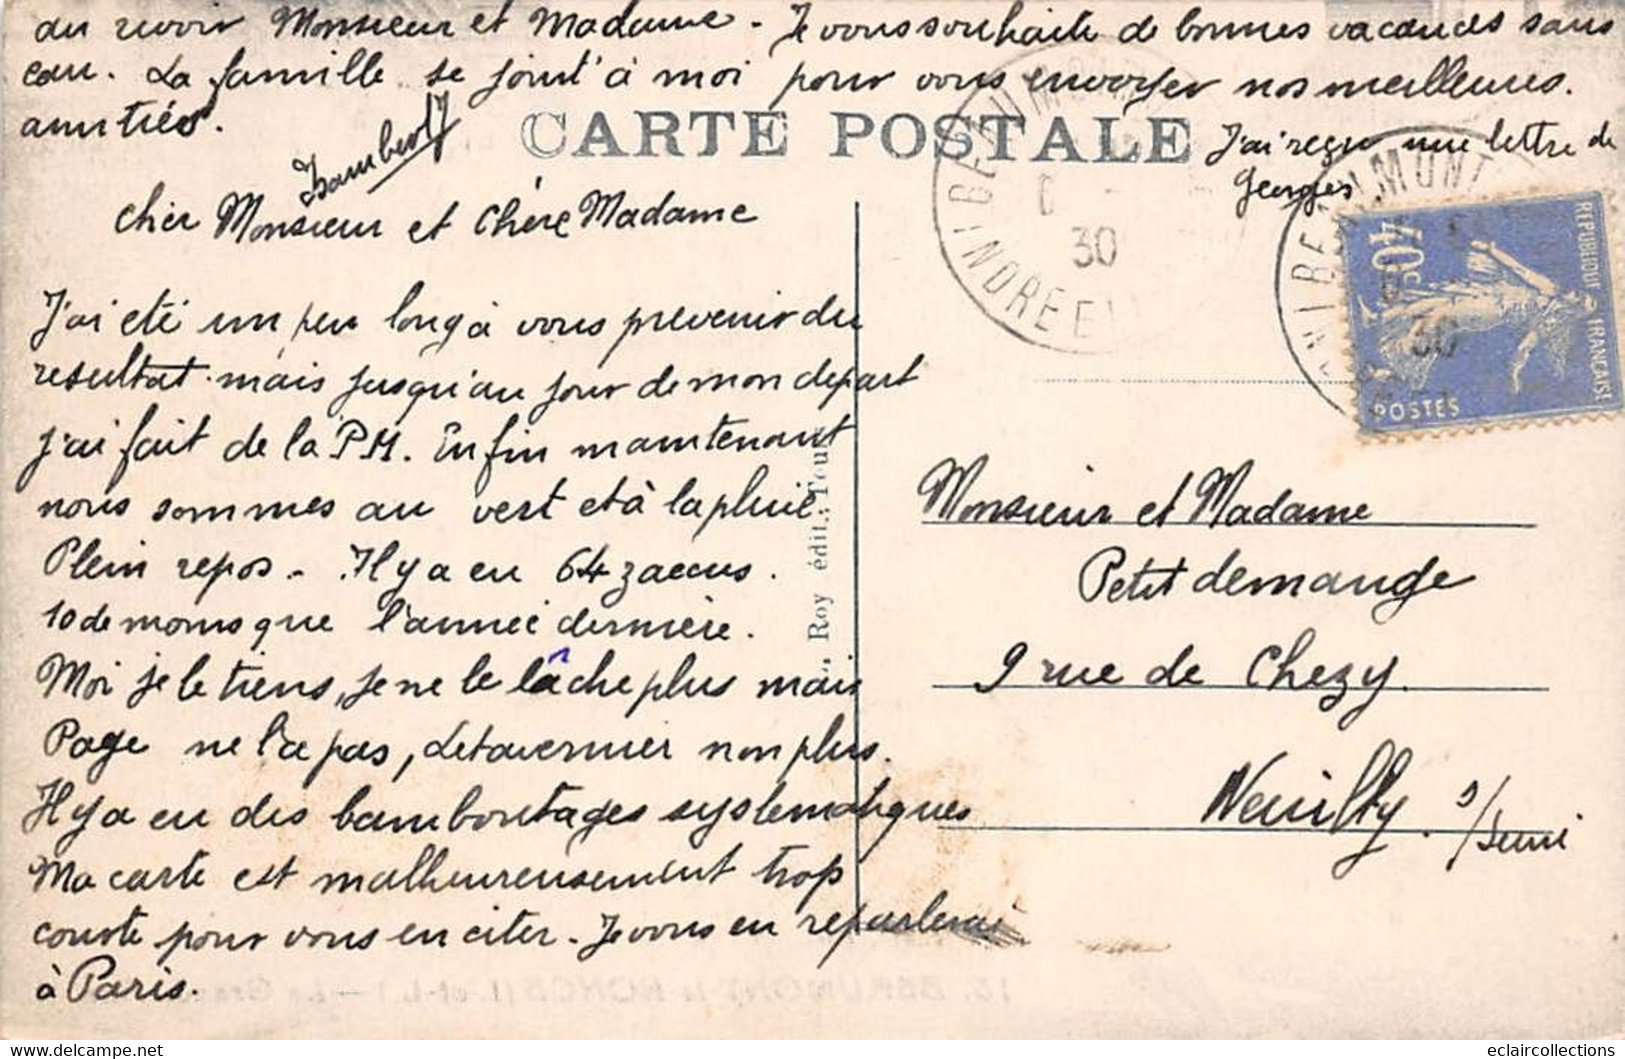 au revoir Monsieur et Madame - Je vous souhaite de bonnes vacances sans
eau. La famille se joint à moi pour vous envoyer nos meilleures
amitiés.
CARTE POSTALE
J'ai reçu une lettre de
Georges
Cher Monsieur et Chère Madame
J'ai été un peu long à vous prevenir du
resultat. mais jusqu'au jour de mon depart
j'ai fait de la PM. Enfin maintenant
nous sommes au vert et à la pluie.
Plein repos - Il y a eu 64
10 de moins que l'année dernière.
Moi je le tiens, je ne le lâche plus mais
Page ne l'a pas, Letavernier non plus.
Il y a eu des bamboutages systematiques
Ma carte est malheureusement trop
courte pour vous en citer. Je vous en reparlerai
à Paris.
Roy édit.
BEAUMONT
INDRE ET
30
40c
REPUBLIQUE FRANÇAISE
POSTES
30
Monsieur et Madame
Petit demange
9 rue de Chezy.
Neuilly s/Seine
BEAUMONT la RONCE (I.-et-L.)
eclaircollections@delcampe.net